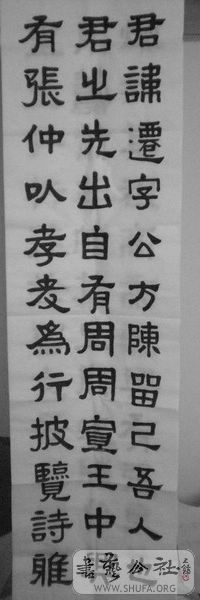 君諱遷字公方陳留己吾人也
君之先出自有周周宣王中興
有張仲以孝友為行披覽詩雅
書藝公社
WWW.SHUFA.ORG